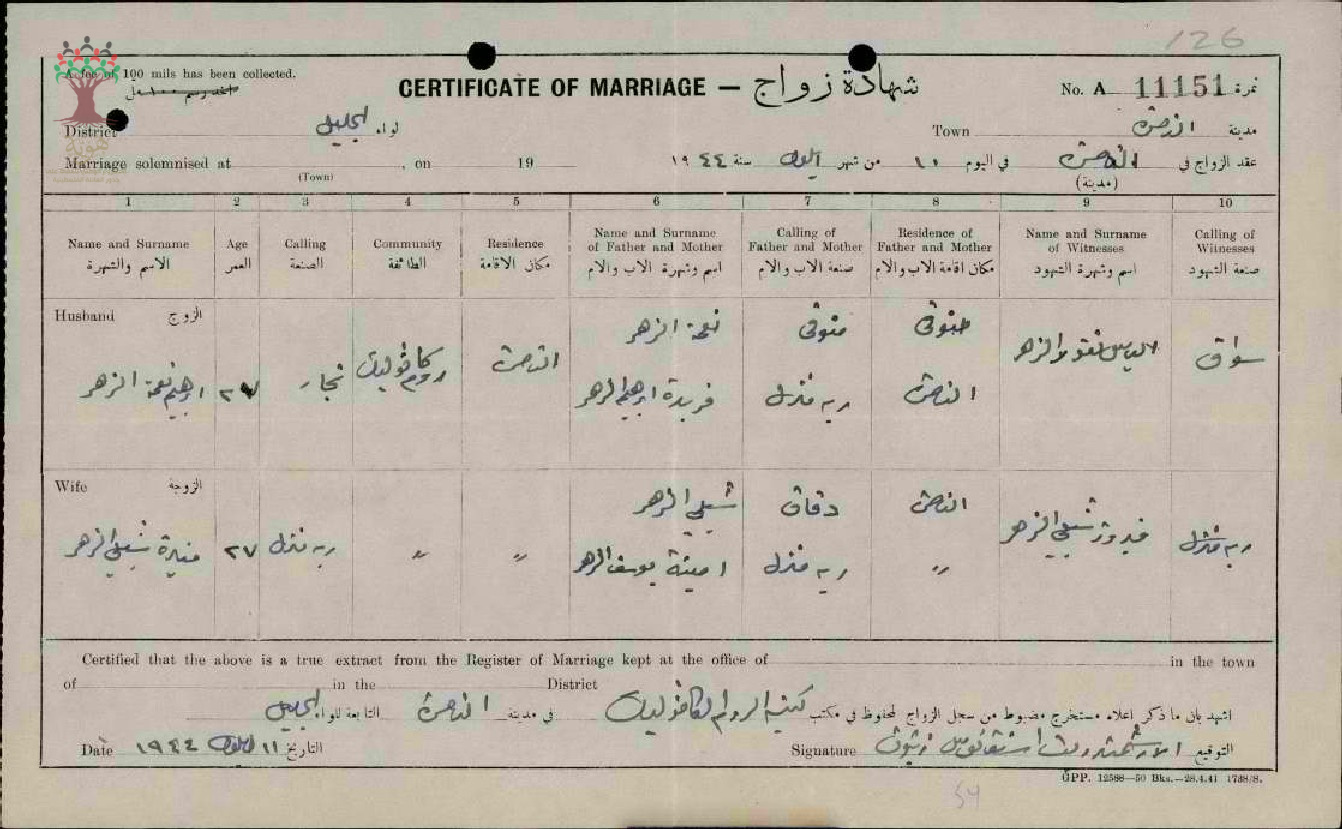 126
A fee of 100 mils has been collected.
CERTIFICATE OF MARRIAGE — شهادة زواج
No. A 11151 نمرة
District لواء الجليل
Town مدينة الناصرة
Marriage solemnised at , on 19
(Town)
عقد الزواج في الناصرة في اليوم ١٠ من شهر ايلول سنة ١٩٤٤
(مدينة)
1 2 3 4 5 6 7 8 9 10
Name and Surname Age Calling Community Residence Name and Surname of Father and Mother Calling of Father and Mother Residence of Father and Mother Name and Surname of Witnesses Calling of Witnesses
الاسم والشهرة العمر الصنعة الطائفة مكان الاقامة اسم وشهرة الاب والام صنعة الاب والام مكان اقامة الاب والام اسم وشهرة الشهود صنعة الشهود
Husband الزوج
ابرهيم نعمة الزهر ٢٧ نجار روم كاثوليك الناصرة نعمة الزهر متوفى متوفى الياس الزهر سواق
فريدة ابرهيم الزهر ربة منزل الناصرة
Wife الزوجة
منيرة شبلي الزهر ٢٧ ربة منزل " " شبلي الزهر دقاق الناصرة فيروز شبلي الزهر ربة منزل
امينة يوسف الزهر ربة منزل "
Certified that the above is a true extract from the Register of Marriage kept at the office of in the town
of in the District
اشهد بان ما ذكر اعلاه مستخرج مضبوط من سجل الزواج المحفوظ في مكتب كنيسة الروم الكاثوليك في مدينة الناصرة التابعة للواء الجليل
Date التاريخ ١١ ايلول ١٩٤٤
Signature التوقيع الارشمندريت
GPP. 12588—50 Bks.—28.4.41 1738/8.
54